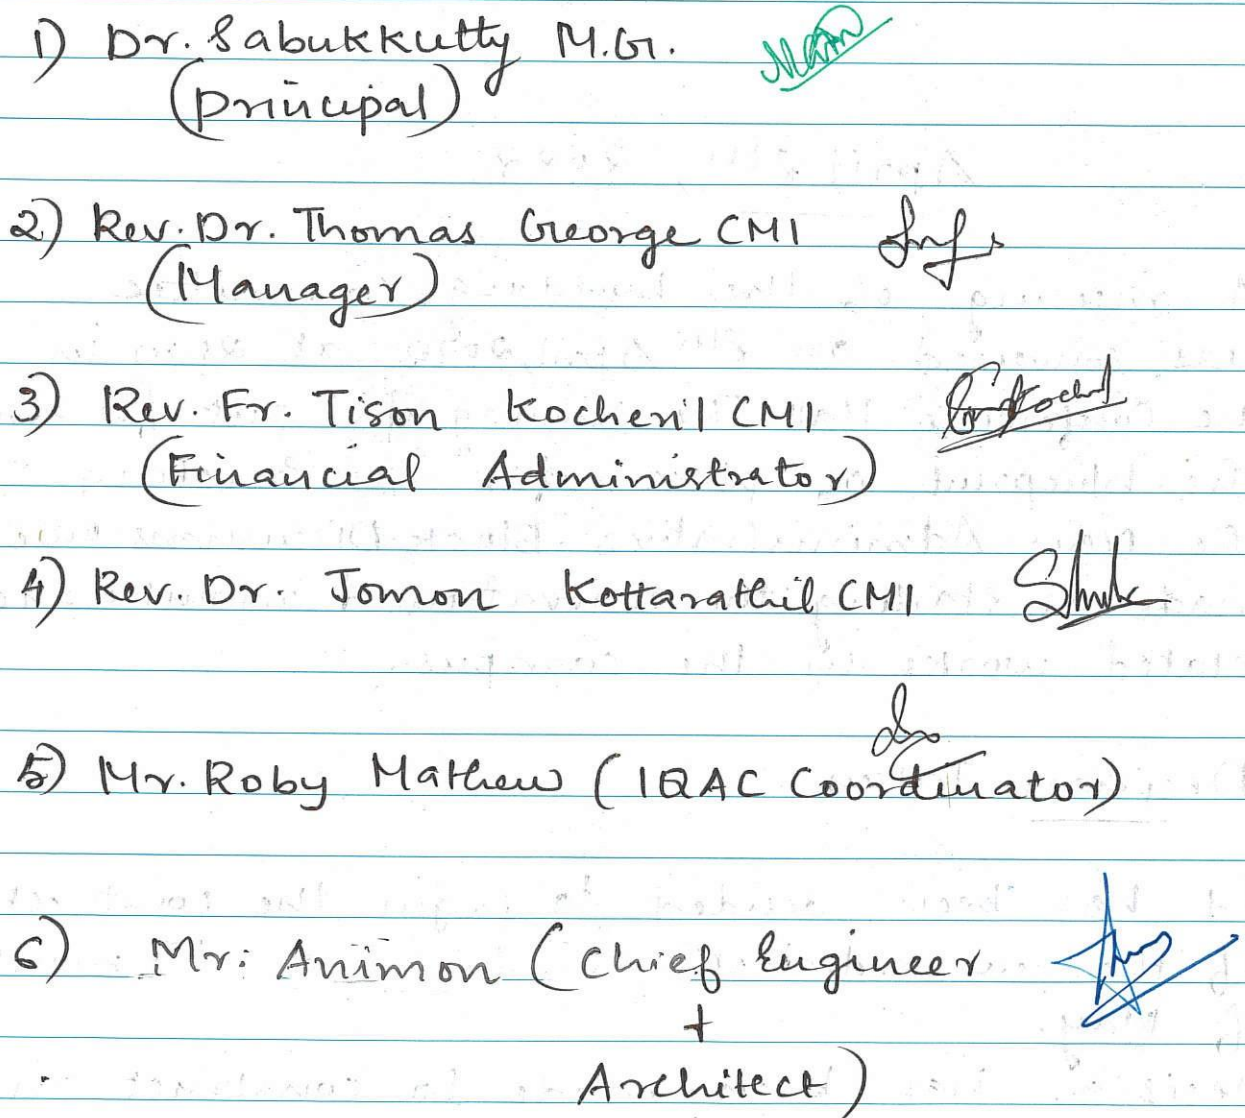 1) Dr. Sabukkutty M.G.
(Principal)
2) Rev. Dr. Thomas George CMI
(Manager)
3) Rev. Fr. Tison Kocheril CMI
(Financial Administrator)
4) Rev. Dr. Jomon Kottarathil CMI
5) Mr. Roby Mathew (IQAC Coordinator)
6) Mr. Animon (Chief Engineer
+
Architect)